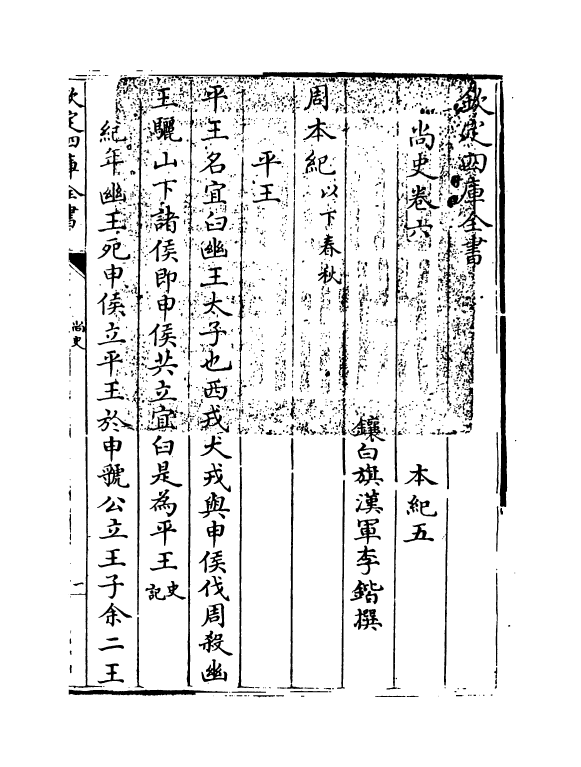 欽定四庫全書
尚史卷六 本紀五
鑲白旗漢軍李鍇撰
周本紀以下春秋
平王
平王名宜臼幽王太子也西戎犬戎與申侯伐周殺幽
王驪山下諸侯即申侯共立宜臼是為平王史記
紀年幽王死申侯立平王於申虢公立王子余二王
欽定四庫全書
尚史
一